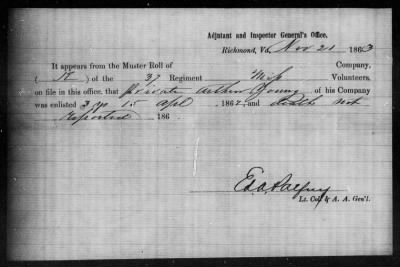 Adjutant and Inspector General's Office,
Richmond, Va. Nov 21 1863
It appears from the Muster Roll of Company,
( K ) of the 37 Regiment Miss Volunteers,
on file in this office, that Private Arthur Young of his Company
was enlisted 3 yr 15 Apl 1862, and death not
Reported 186
Lt. Col. & A. A. Gen'l.